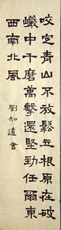 咬定青山不放鬆立根原在破
巖中千磨萬擊還堅勁任爾東
西南北風 劉知遠書